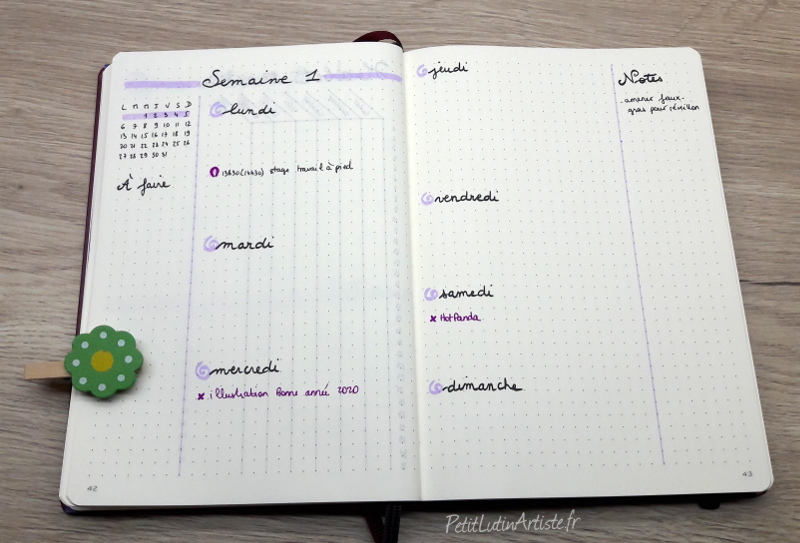 Semaine 1
L M M J V S D
1 2 3 4 5
6 7 8 9 10 11 12
13 14 15 16 17 18 19
20 21 22 23 24 25 26
27 28 29 30 31
À faire
lundi
13h30(14h30) stage travail à pied
mardi
mercredi
x illustration Bonne année 2020
42
jeudi
vendredi
samedi
x HotPanda
dimanche
Notes
- amener foux-
gras pour réveillon
43
PetitLutinArtiste.fr